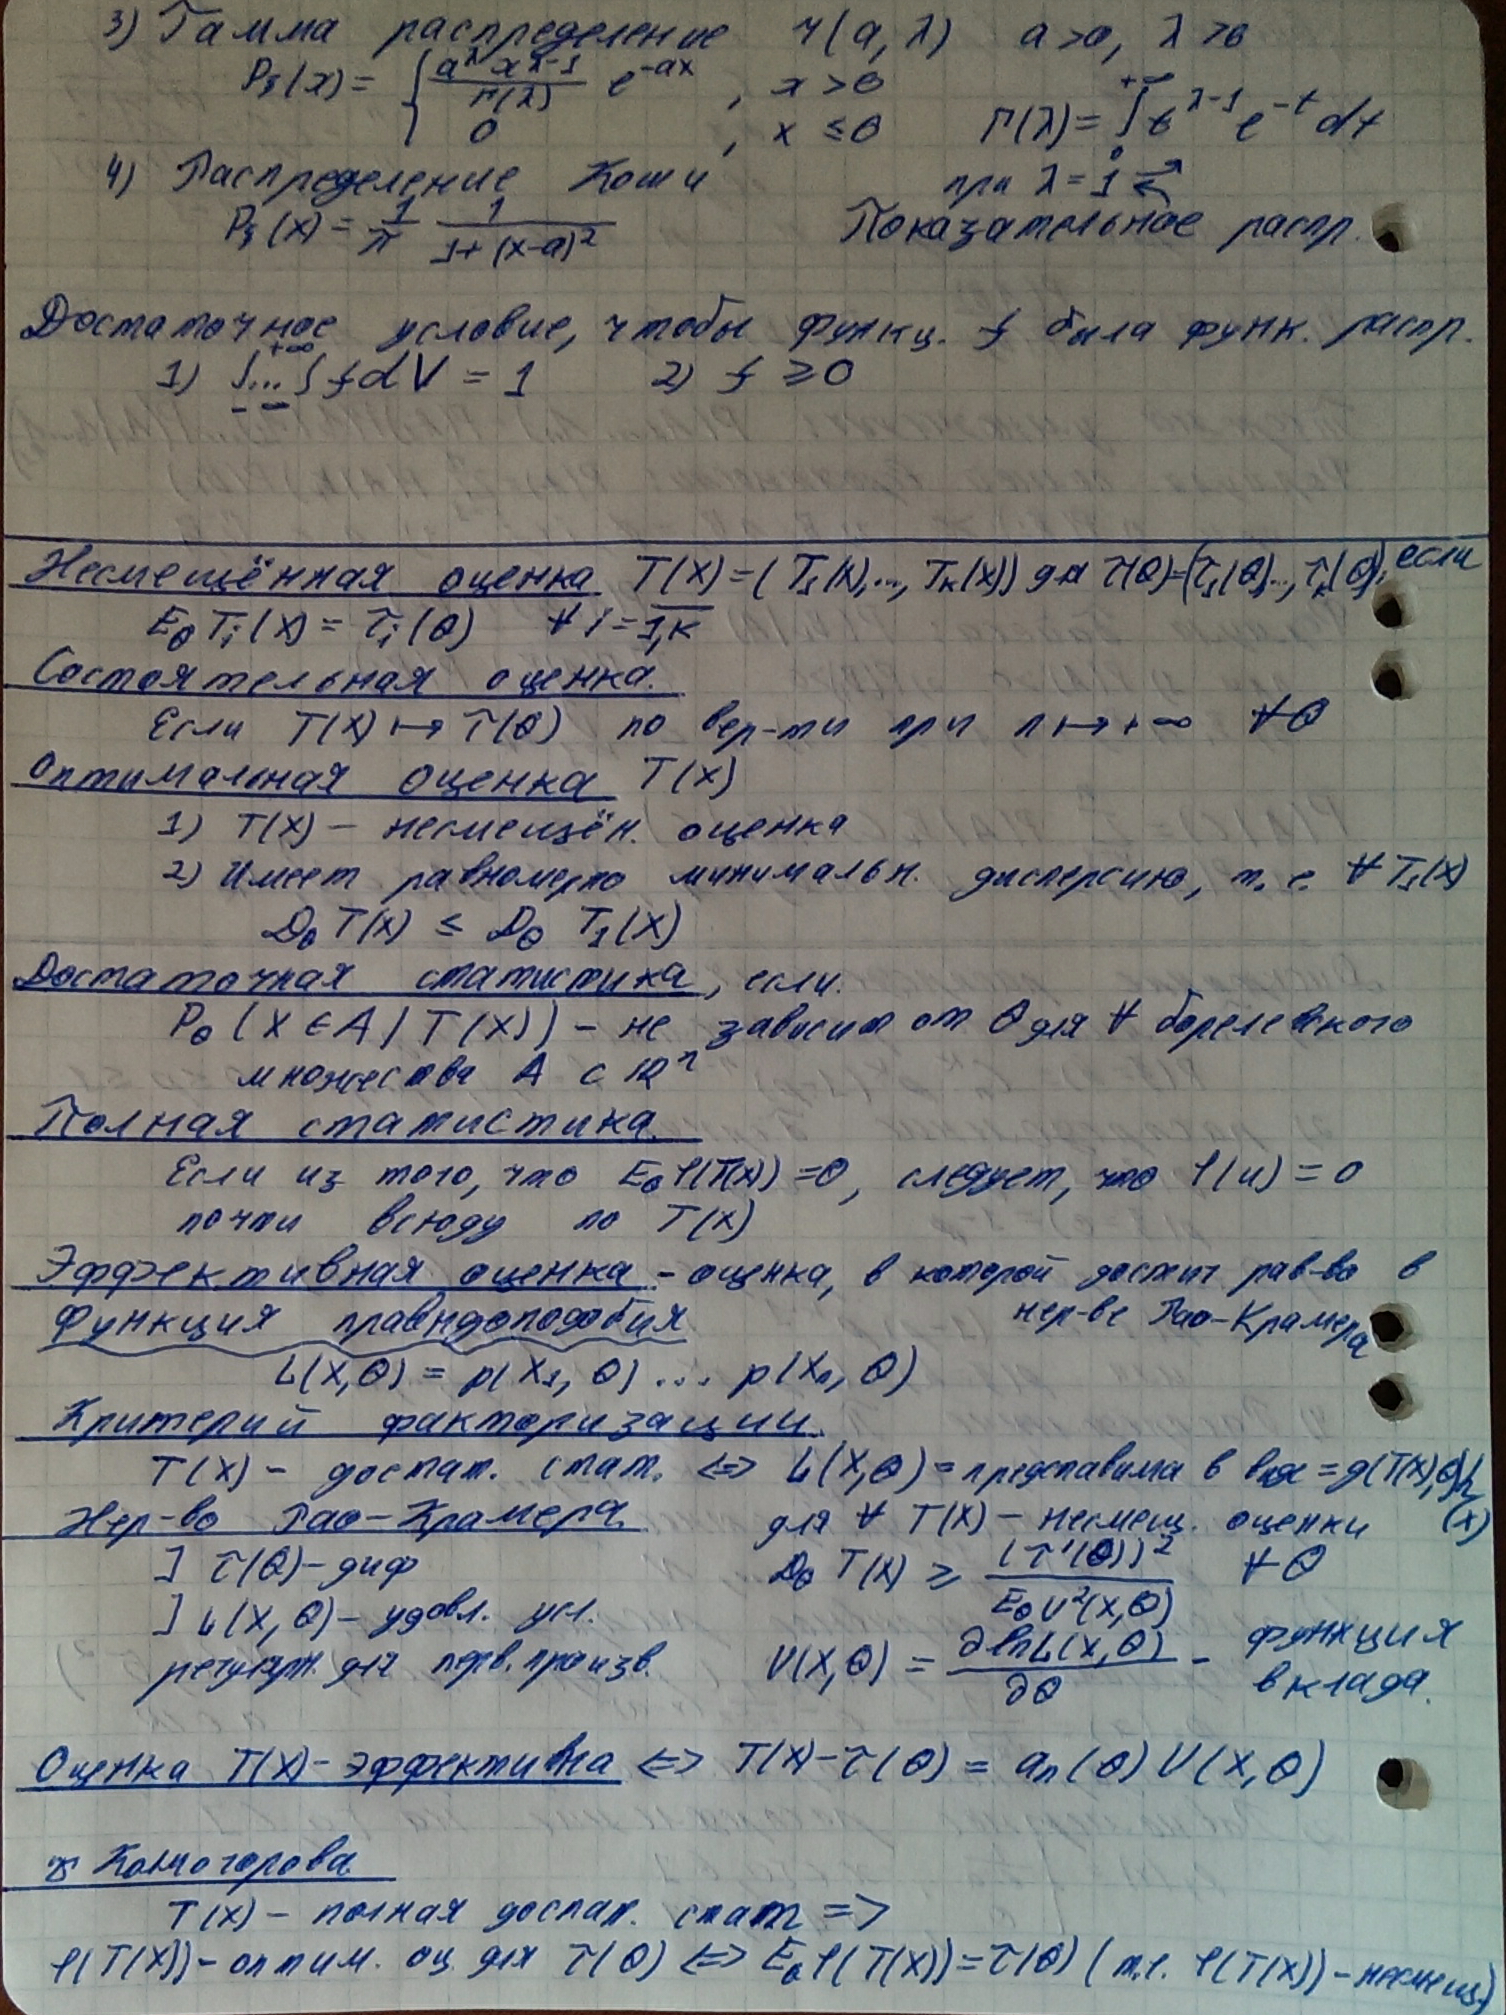 3) Гамма распределение γ(a, λ) a>0, λ>0
P_ξ(x) = { a^λ x^(λ-1) / Γ(λ) e^(-ax), x>0
0, x ≤ 0 Γ(λ) = ∫_0^(+∞) t^(λ-1) e^(-t) dt
4) Распределение Коши при λ = 1 ⇄
P_ξ(x) = 1/π 1/(1+(x-a)^2) Показательное распр.
Достаточное условие, чтобы функц. f была функ. распр.
1) ∫...∫ f dV = 1 2) f ≥ 0
Несмещённая оценка T(X) = (T_1(X),..., T_k(X)) для τ(θ)=(τ_1(θ),..., τ_k(θ)), если
E_θ T_i(X) = τ_i(θ) ∀ i = 1,k
Состоятельная оценка.
Если T(X) ↦ τ(θ) по вер-ти при n ↦ +∞ ∀θ
Оптимальная оценка T(X)
1) T(X) – несмещён. оценка
2) Имеет равномерно минимальн. дисперсию, т. е. ∀ T_1(X)
D_θ T(X) ≤ D_θ T_1(X)
Достаточная статистика, если.
P_θ (X ∈ A | T(X)) – не зависит от θ для ∀ борелевского
множества A ⊂ R^n
Полная статистика.
Если из того, что E_θ φ(T(X)) = 0, следует, что φ(u) = 0
почти всюду по T(X)
Эффективная оценка – оценка, в которой достиг. рав-во в
нер-ве Рао-Крамера
Функция правдоподобия
L(X,θ) = p(X_1, θ) ... p(X_n, θ)
Критерий факторизации.
T(X) – достат. стат. ⇔ L(X,θ) = представима в виде = g(T(X),θ)h(X)
Нер-во Рао-Крамера. для ∀ T(X) – несмещ. оценки
] τ(θ) – диф D_θ T(X) ≥ (τ'(θ))^2 / E_θ U^2(X,θ) ∀ θ
] L(X, θ) – удовл. усл.
регулярн. для перв. произв. U(X,θ) = ∂ ln L(X,θ) / ∂θ – функция вклада.
Оценка T(X) – эффективна ⇔ T(X) – τ(θ) = a_n(θ) U(X,θ)
Колмогорова
T(X) – полная достат. стат ⇒
φ(T(X)) – оптим. оц. для τ(θ) ⇔ E_θ φ(T(X)) = τ(θ) (т.е. φ(T(X)) – несмещ.)